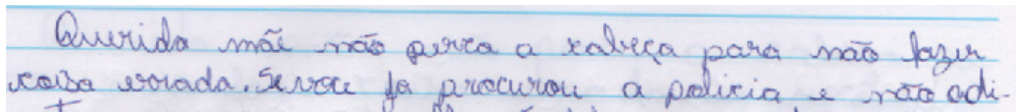 Querida mãe não perca a cabeça para não fazer
coisa errada. Se voce ja procurou a policia e não adi-